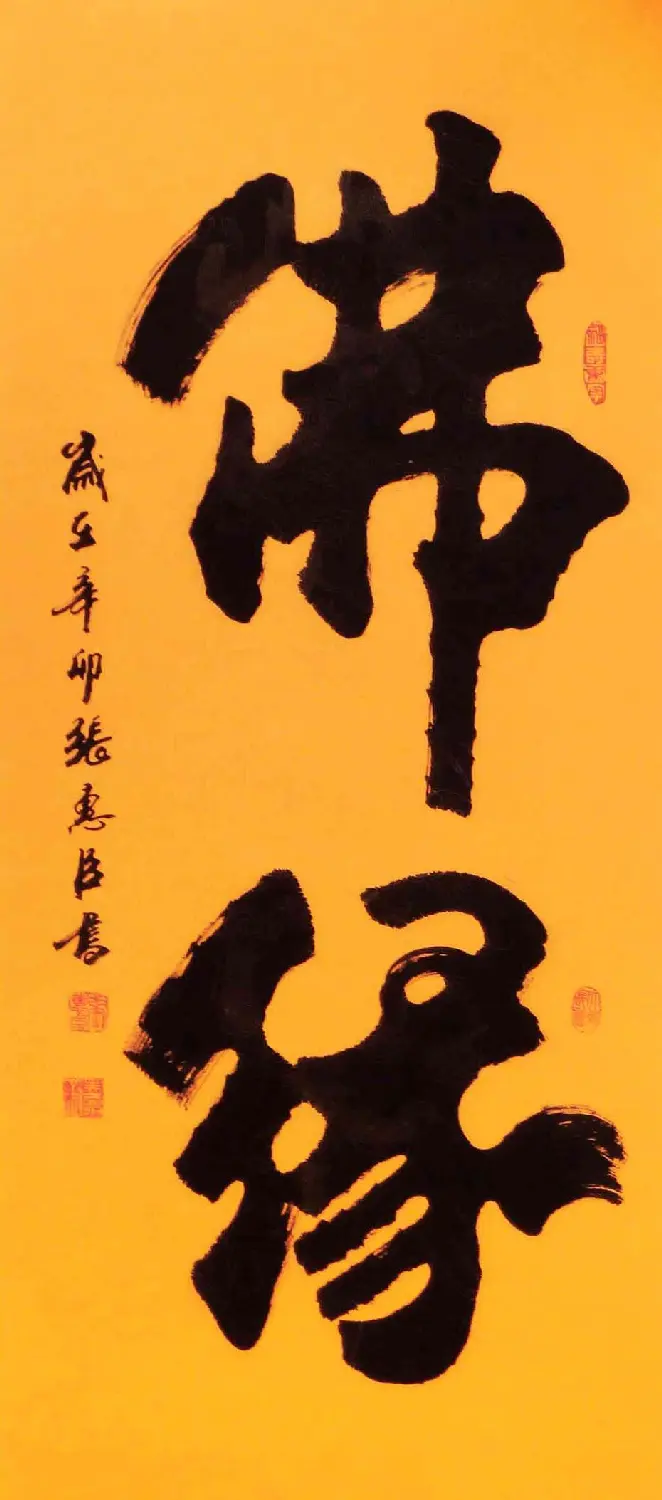 佛緣
歲在辛卯張惠臣書